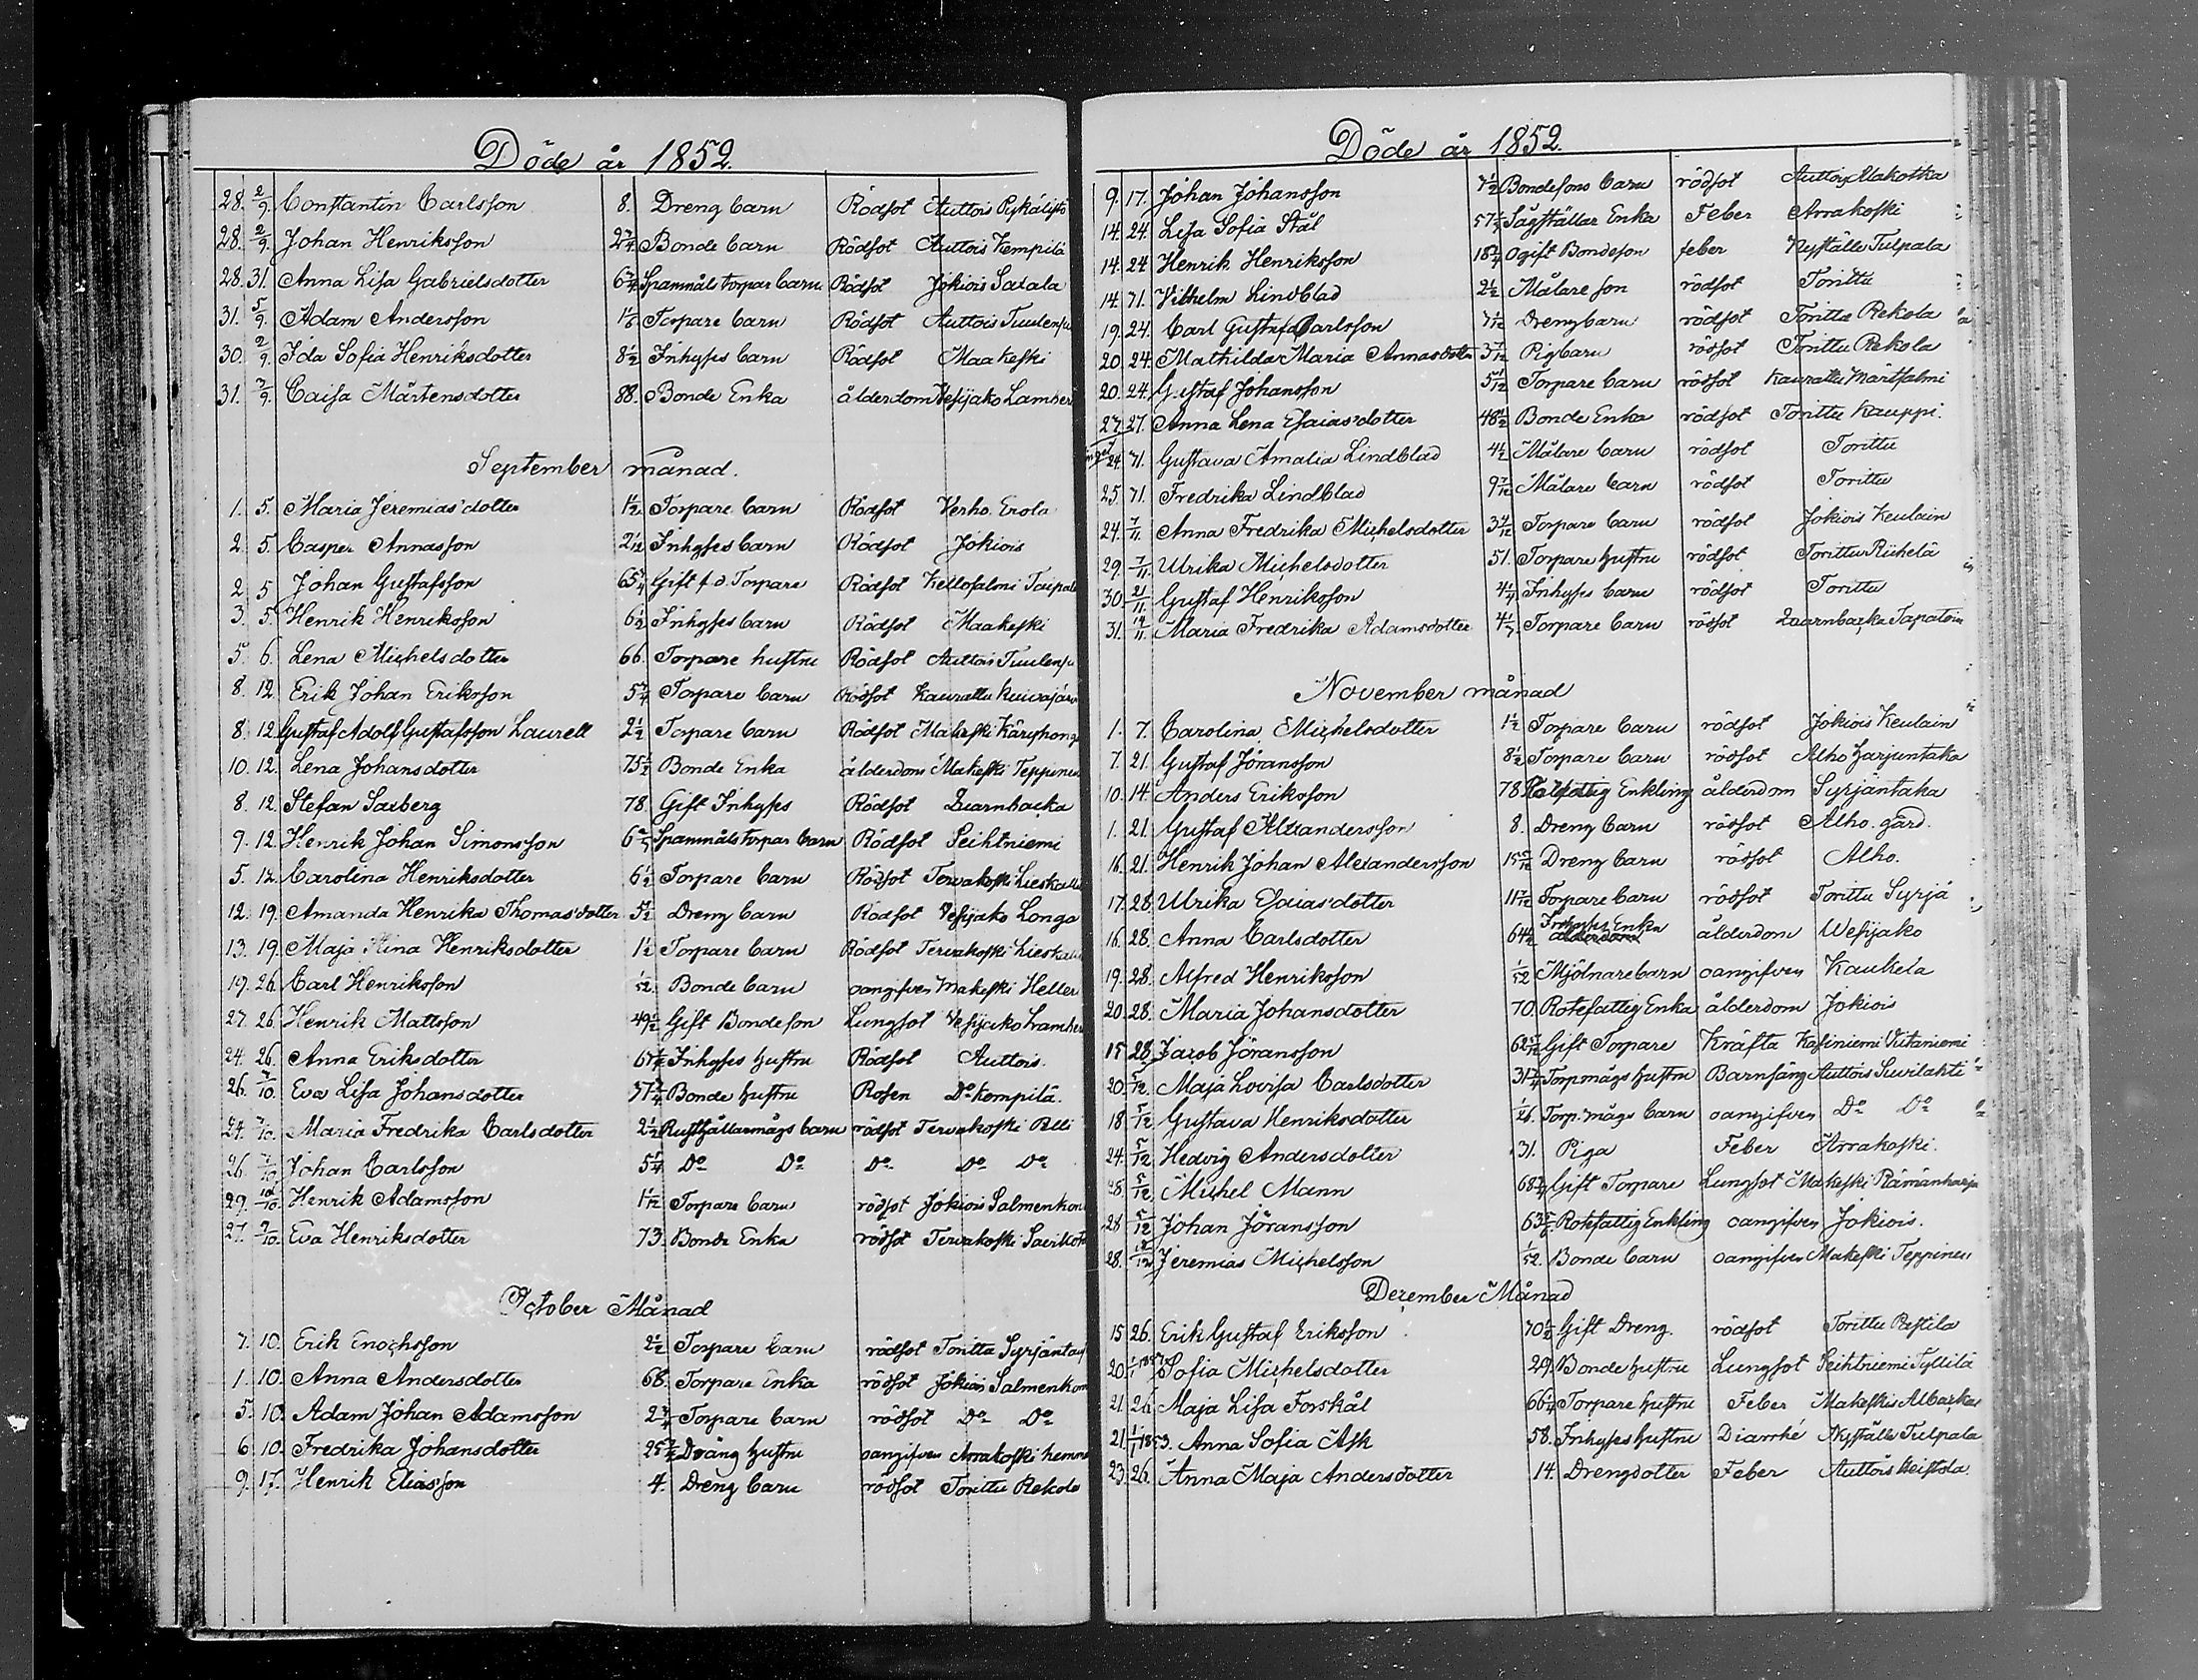 Döde år 1852.
28. 2/9. Constantin Carlsson 8. Dreng barn Rödsot Auttois
28. 2/9. Johan Henriksson 2 3/4 Bonde barn Rödsot Auttois Kempilä
28. 31. Anna Lisa Gabrielsdotter 6 3/4 Spanmåls torpar barn Rödsot Jokiois Saxala
31. 5/9. Adam Andersson Torpare barn Rödsot Auttois
30. 2/9. Ida Sofia Henriksdotter 8 1/2 Inhyses barn Rödsot Maakeski
31. Caisa Mårtensdotter 88. Bonde Enka ålderdom Vesijako
September månad.
1. 5. Maria Jeremias'dotter 1 1/2 Torpare barn Rödsot Verho. Erola
2. 5. Casper Annasson 2 1/12 Inhyses barn Rödsot Jokiois
2 5 Johan Gustafsson 65 Gift f.d. Torpare Rödsot Kellosalmi
3. 5. Henrik Henriksson 6 1/2 Inhyses barn Rödsot Maakeski
5. 6. Lena Michelsdotter 66. Torpare hustru Rödsot Auttois
8. 12. Erik Johan Eriksson 5 3/4 Torpare barn Rödsot Kaurattu
8. 12. Gustaf Adolf Gustafsson Laurell 2 1/2 Torpare barn Rödsot Makeski
10. 12. Lena Johansdotter 75 1/2 Bonde Enka ålderdom Makeski Teppinen
8. 12. Stefan Saxberg 78. Gift Inhyses Rödsot Quarnbacka
9. 12. Henrik Johan Simonsson Spanmåls torpar barn Rödsot Seihtniemi
5. 12. Carolina Henriksdotter 6 1/2 Torpare barn Rödsot Tervakoski
12. 19. Amanda Henrika Thomas'dotter 5 1/2 Dreng barn Rödsot Vesijako Longa
13. 19. Maja Stina Henriksdotter 1 1/2 Torpare barn Rödsot Tervakoski
19. 26. Carl Henriksson 1/52 Bonde barn oangifven Makeski Heller
27. 26. Henrik Mattsson 49 1/2 Gift Bondeson Lungsot Vesijako
24. 26. Anna Eriksdotter Inhyses hustru Rödsot Auttois.
26. Eva Lisa Johansdotter Bonde hustru Rosen Do Kempilä.
24. Maria Fredrika Carlsdotter 2 1/2 Rusthållarmågs barn rödsot Tervakoski Pelli
26. Johan Carlsson 5 1/4 Do Do Do Do Do
29. 10/10. Henrik Adamsson 1 1/12 Torpare barn rödsot Jokiois
27. Eva Henriksdotter 73. Bonde Enka rödsot Tervakoski
October Månad
7. 10. Erik Enochsson 2 1/2 Torpare barn rödsot Torittu
1. 10. Anna Andersdotter 68. Torpare Enka rödsot Jokiois
5. 10. Adam Johan Adamsson 2 3/4 Torpare barn rödsot Do Do
6 10. Fredrika Johansdotter Dräng hustru oangifven Arrakoski
9. 17. Henrik Eliasson 4. Dreng barn rödsot Torittu
Döde år 1852.
9. 17. Johan Johansson 7 1/2 Bondesons barn rödsot Auttois
14. 24. Lisa Sofia Stål Sågställar Enka Feber Arrakoski
14. 24 Henrik Henriksson 18 3/4 Ogift Bondeson feber Nyställe Tulpala
14. 71. Vilhelm Lindblad 2 1/2 Målare son rödsot Torittu
19. 24. Carl Gustaf Carlsson 7 1/12 Drengbarn rödsot Torittu Rekola
20. 24. Mathilda Maria Annasdotter Pigbarn rödsot Torittu Rekola
20. 24. Gustaf Johansson 5 1/12 Torpare barn rödsot Kaurattu Märtsalmi
27. 27. Anna Lena Esaias'dotter 48 1/2 Bonde Enka rödsot Torittu Kauppi.
24. 71. Gustava Amalia Lindblad 4 1/2 Målare barn rödsot Torittu
25. 71. Fredrika Lindblad Målare barn rödsot Torittu
24. 7/11. Anna Fredrika Michelsdotter Torpare barn rödsot Jokiois Keulain
29. 7/11. Ulrika Michelsdotter 51. Torpare hustru rödsot Torittu
30 21/11. Gustaf Henriksson Inhyses barn rödsot Torittu
31. 14/11. Maria Fredrika Adamsdotter Torpare barn rödsot Quarnbacka
November månad
1. 7. Carolina Michelsdotter 1 1/2 Torpare barn rödsot Jokiois Keulain
7. 21. Gustaf Jöransson 8 1/2 Torpare barn rödsot Alho Harjuntaka
10. 14. Anders Eriksson 78. Rotefattig Enkling ålderdom Syrjäntaka
1. 21. Gustaf Alexandersson 8. Dreng barn rödsot Alho. gård.
16. 21. Henrik Johan Alexandersson Dreng barn rödsot Alho.
17. 28. Ulrika Esaias'dotter Torpare barn rödsot Torittu Syrjä
16. 28. Anna Carlsdotter 64 1/2 Inhyses Enka ålderdom Wesijako
19. 28. Alfred Henriksson 1/52 Mjölnare barn oangifven Kaukela
20. 28. Maria Johansdotter 70. Rotefattig Enka ålderdom Jokiois
15 28. Jacob Jöransson Gift Torpare Kräfta Kasiniemi
20. 5/12. Maja Lovisa Carlsdotter Torpmågs hustru Barnsäng Auttois Suvilahti
18 5/12 Gustava Henriksdotter 1/26. Torp. mågs barn oangifven Do Do
24. 5/12 Hedvig Andersdotter 31. Piga Feber Arrakoski.
5/12 Michel Mann Gift Torpare Lungsot Makeski
28 5/12 Johan Jöransson Rotefattig Enkling oangifven Jokiois.
28. Jeremias Michelsson 1/52. Bonde barn oangifven Makeski Teppinen
December Månad
15 26. Erik Gustaf Eriksson 70 1/2 Gift Dreng. rödsot Torittu Restila
20. Sofia Michelsdotter 29. Bonde hustru Lungsot Seihtniemi Tyllilä
21. 26. Maja Lisa Forskål Torpare hustru Feber Makeski
21. 1/1 1853. Anna Sofia Ask 58. Inhyses hustru Diarrhé Nyställe Tulpala
23. 26. Anna Maja Andersdotter 14. Drengdotter Feber Auttois